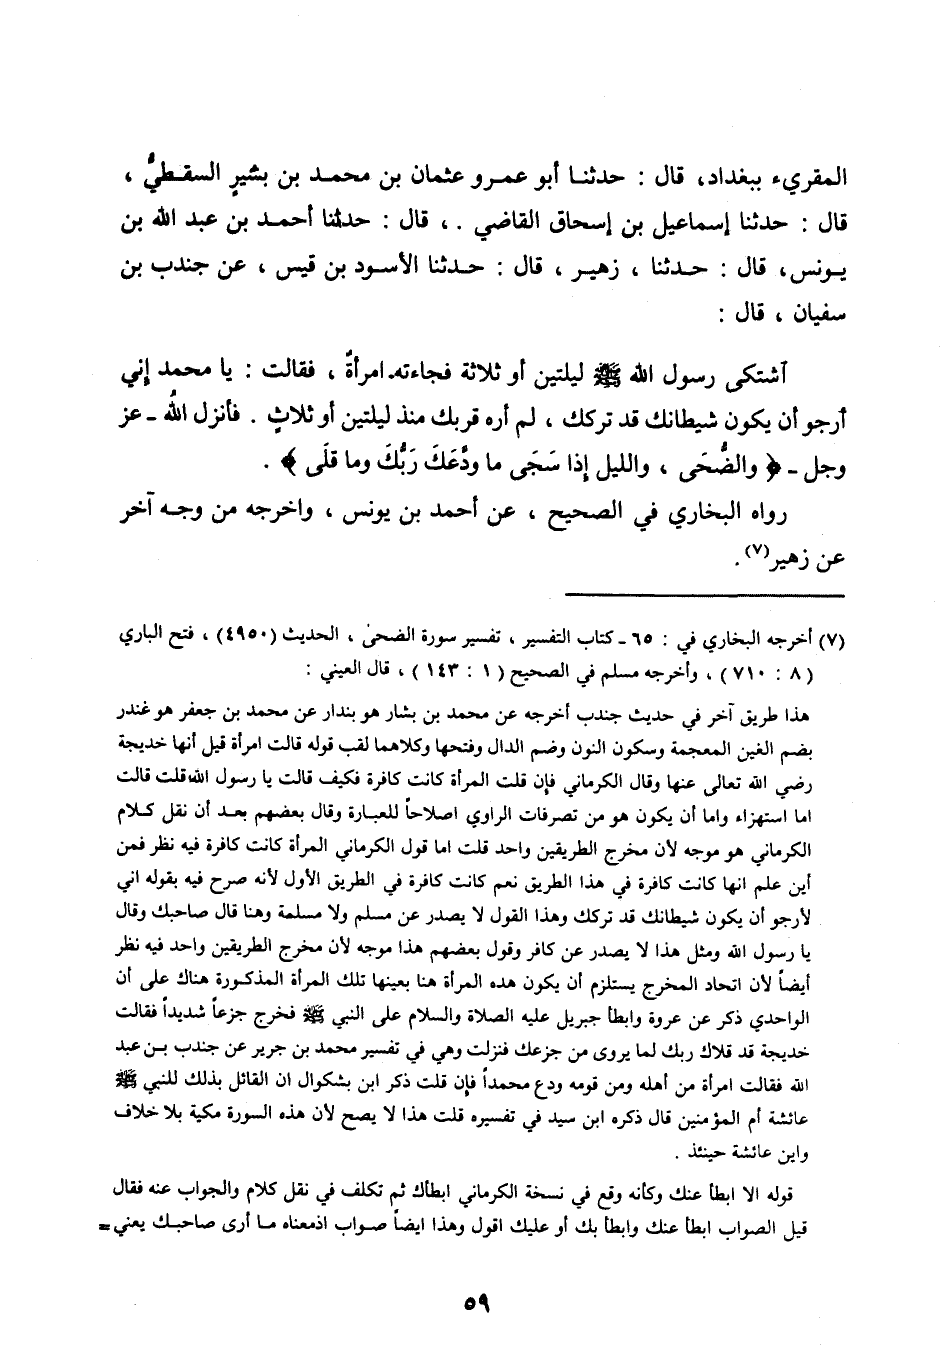 المقريء ببغداد، قال : حدثنـا أبو عمـرو عثمان بن محمـد بن بشيرٍ السقـطيُّ ،
قال : حدثنا إسماعيل بن إسحاق القاضي . ، قال : حدثنا أحمـد بن عبد الله بن
يـونس، قال : حـدثنا ، زهيـر ، قال : حـدثنا الأسـود بن قيس ، عن جندب بن
سفيان ، قال :
آشتكى رسول الله ﷺ ليلتين أو ثلاثة فجاءته امرأةٌ ، فقالت : يا محمد إني
أرجو أن يكون شيطانك قد تركك ، لم أره قربك منذ ليلتين أو ثلاثٍ . فأنزل اللهُ ـ عز
وجل ـ ﴿ والضُّحَى ، والليل إذا سَجَى ما ودَّعَكَ رَبُّكَ وما قلَى ﴾ .
رواه البخاري في الصحيح ، عن أحمد بن يونس ، واخرجه من وجـه آخر
عن زهير(٧).
(٧) أخرجه البخاري في : ٦٥ ـ كتاب التفسير ، تفسير سورة الضحىٰ ، الحديث (٤٩٥٠) ، فتح الباري
( ٨ : ٧١٠ ) ، وأخرجه مسلم في الصحيح ( ١ : ١٤٣ ) ، قال العيني :
هذا طريق آخر في حديث جندب أخرجه عن محمد بن بشار هو بندار عن محمد بن جعفر هو غندر
بضم الغين المعجمة وسكون النون وضم الدال وفتحها وكلاهما لقب قوله قالت امرأة قيل أنها خديجة
رضي الله تعالى عنها وقال الكرماني فإن قلت المرأة كانت كافرة فكيف قالت يا رسول الله قلت قالت
اما استهزاء واما أن يكون هو من تصرفات الراوي اصلاحاً للعبارة وقال بعضهم بعد أن نقل كلام
الكرماني هو موجه لأن مخرج الطريقين واحد قلت اما قول الكرماني المرأة كانت كافرة فيه نظر فمن
أين علم انها كانت كافرة في هذا الطريق نعم كانت كافرة في الطريق الأول لأنه صرح فيه بقوله اني
لأرجو أن يكون شيطانك قد تركك وهذا القول لا يصدر عن مسلم ولا مسلمة وهنا قال صاحبك وقال
يا رسول الله ومثل هذا لا يصدر عن كافر وقول بعضهم هذا موجه لأن مخرج الطريقين واحد فيه نظر
أيضاً لأن اتحاد المخرج يستلزم أن يكون هذه المرأة هنا بعينها تلك المرأة المذكورة هناك على أن
الواحدي ذكر عن عروة وابطأ جبريل عليه الصلاة والسلام على النبي ﷺ فخرج جزعاً شديداً فقالت
خديجة قد قلاك ربك لما يروى من جزعك فنزلت وهي في تفسير محمد بن جرير عن جندب بـن عبد
الله فقالت امرأة من أهله ومن قومه ودع محمداً فإن قلت ذكر ابن بشكوال ان القائل بذلك للنبي ﷺ
عائشة أم المؤمنين قال ذكره ابن سيد في تفسيره قلت هذا لا يصح لأن هذه السورة مكية بلا خلاف
واين عائشة حينئذ .
قوله الا ابطأ عنك وكأنه وقع في نسخة الكرماني ابطأك ثم تكلف في نقل كلام والجواب عنه فقال
قيل الصواب ابطأ عنك وابطأ بك أو عليك اقول وهذا ايضاً صواب اذمعناه مـا أرى صاحبـك يعني=
٥٩